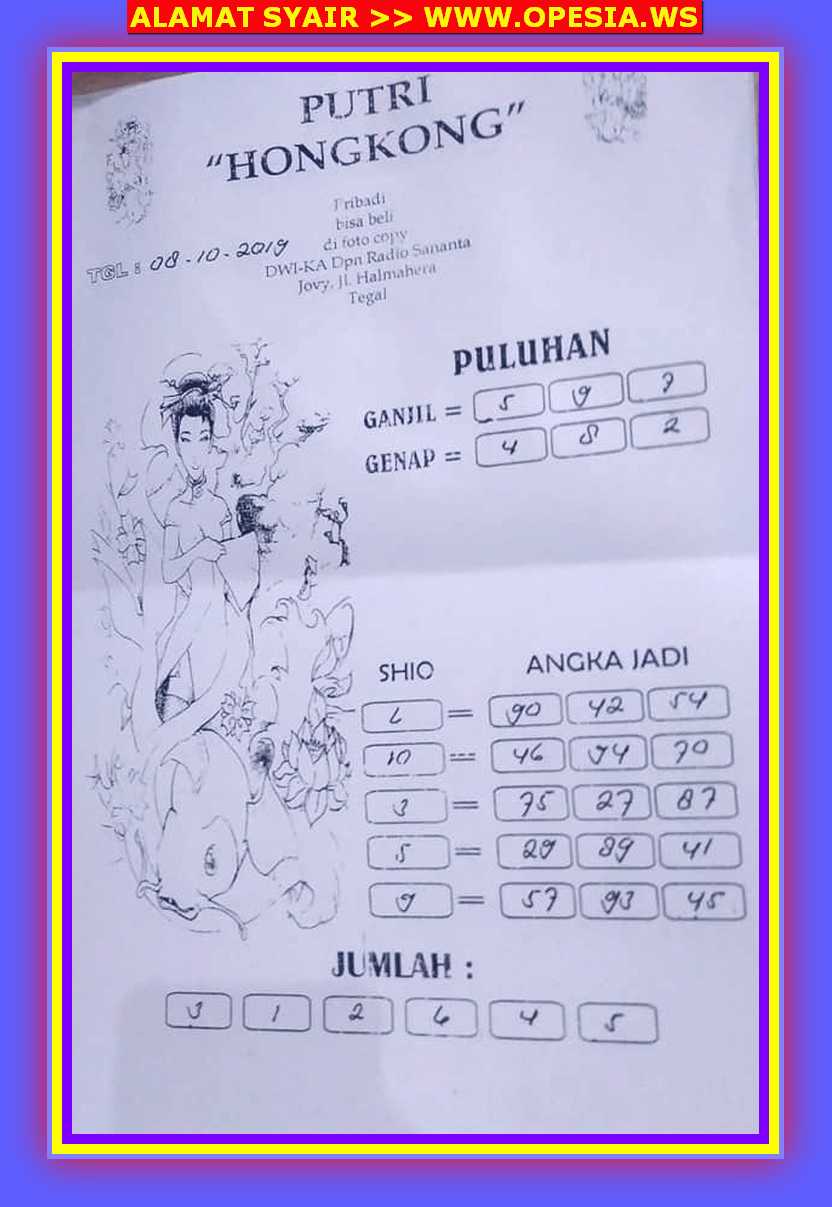 ALAMAT SYAIR >> WWW.OPESIA.WS
PUTRI
“HONGKONG”
Pribadi
bisa beli
di foto copy
DWI-KA Dpn Radio Sananta
Jovy, Jl. Halmahera
Tegal
TGL : 08-10-2019
PULUHAN
GANJIL = 5 9 7
GENAP = 4 8 2
SHIO ANGKA JADI
6 = 90 42 54
10 = 46 94 70
3 = 75 27 87
5 = 29 89 41
9 = 57 93 45
JUMLAH :
3 1 2 6 4 5